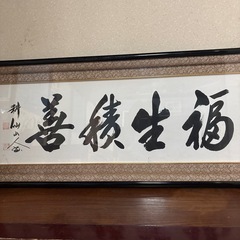 福生積善